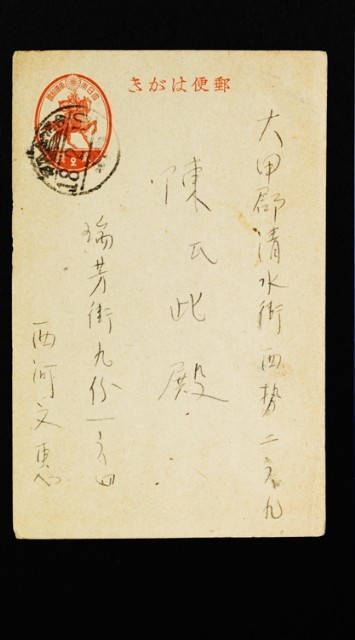 郵便はがき
大甲郡清水街西勢二六九
陳氏此殿
瑞芳街九份一六四
西河文恵